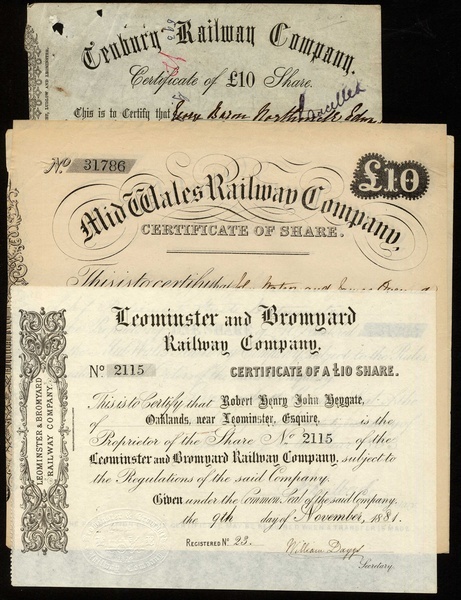 Tenbury Railway Company.
Certificate of £10 Share.
This is to Certify that
Cancelled
No 31786
£10
Mid Wales Railway Company,
CERTIFICATE OF SHARE.
This is to certify that
Leominster and Bromyard
Railway Company.
No 2115 CERTIFICATE OF A £10 SHARE.
This is to Certify that Robert Henry John Heygate,
of Oaklands, near Leominster, Esquire, is the
Proprietor of the Share No 2115 of the
Leominster and Bromyard Railway Company, subject to
the Regulations of the said Company.
Given under the Common Seal of the said Company,
the 9th day of November, 1881.
REGISTERED No. 23.
William Daggs
Secretary.
LEOMINSTER & BROMYARD
RAILWAY COMPANY.